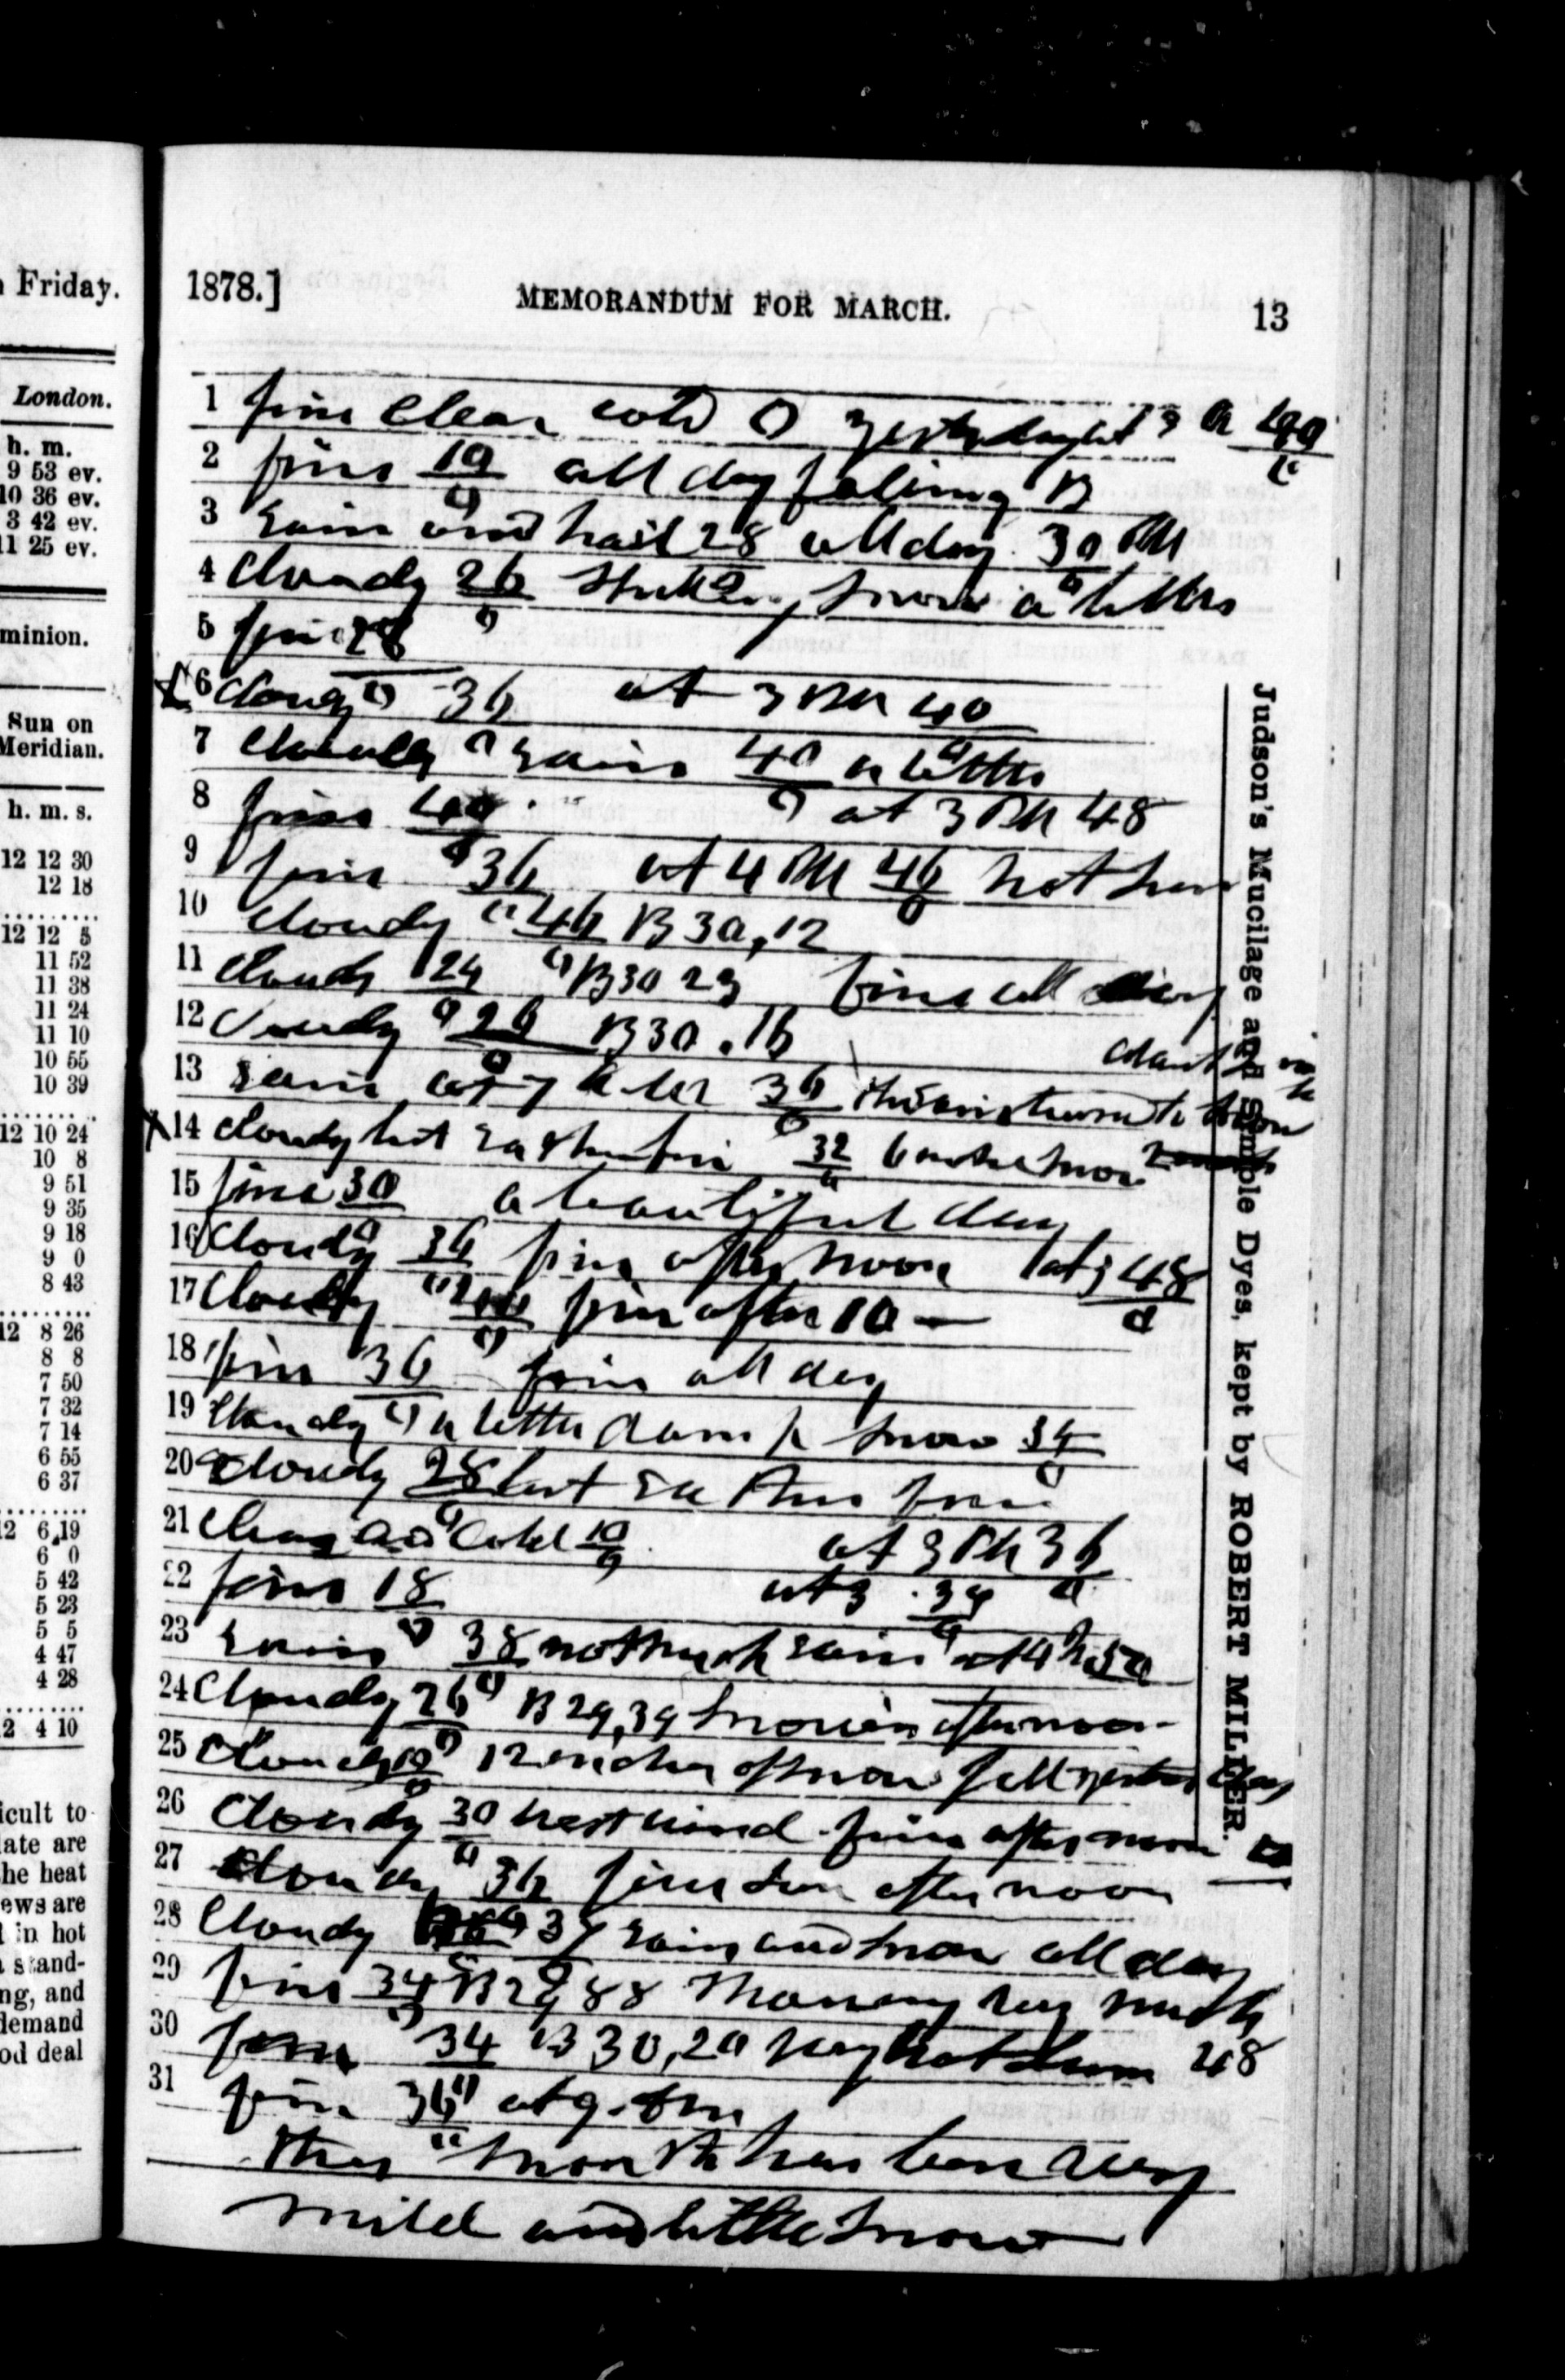 Friday.
London.
h. m.
9 53 ev.
10 36 ev.
3 42 ev.
11 25 ev.
minion.
Sun on
Meridian.
h. m. s.
12 12 30
12 18
12 12 5
11 52
11 38
11 24
11 10
10 55
10 39
12 10 24
10 8
9 51
9 35
9 18
9 0
8 43
12 8 26
8 8
7 50
7 32
7 14
6 55
6 37
12 6 19
6 0
5 42
5 23
5 5
4 47
4 28
2 4 10
icult to
late are
the heat
ews are
in hot
stand-
ng, and
demand
od deal
1878.]
MEMORANDUM FOR MARCH.
13
1 fine clear cold 0
2 fine 10 all day
3 rain and hail 28 all day 30 PM
4 cloudy 26 snow a little
5 fine 28
6 cloudy 36 at 3 PM 40
7 cloudy rain 40 a little
8 fine 40 at 3 PM 48
9 fine 36 at 4 PM 46 hot sun
10 cloudy B 30,12
11 cloudy 24 B 30 23 fine all day
12 cloudy 26 B 30.16
13 rain 36
14 cloudy but rather fine 32 snow
15 fine 30 a beautiful day
16 cloudy 36 fine afternoon at 3 48
17 cloudy fine after 10 —
18 fine 36 fine all day
19 cloudy a little damp snow 34
20 cloudy 28 but rather fine
21 cold 10 at 3 PM 36
22 fine 18 at 3 . 34
23 rain 38 not much rain at 4 50
24 cloudy 26 B 29,39 snow in afternoon
25 cloudy 10 12 inches of snow fell yesterday
26 cloudy 30 west wind fine afternoon
27 cloudy 36 fine sun afternoon
28 cloudy 34 rain and snow all day
29 fine 34 B 29 88 very much
30 fine 34 B 30,20 very hot sun 48
31 fine 36 at 9
this month has been very
mild and little snow
Judson's Mucilage and Simple Dyes, kept by ROBERT MILLER.